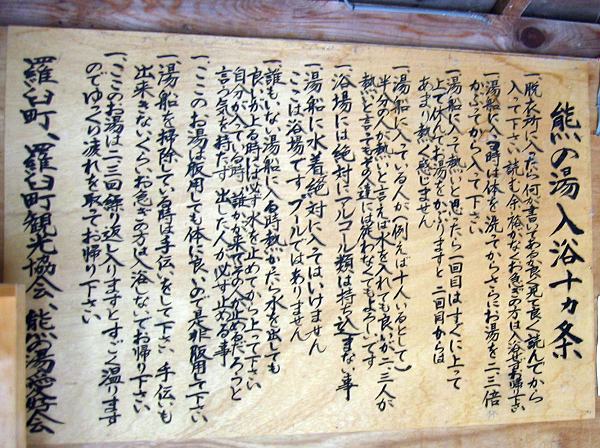 熊の湯入浴十カ条
一、脱衣所に入ったら何が書いてあるか良く見て良く読んでから
入って下さい 読む余裕がなくお急ぎの方は入浴せずお帰り下さい
一、湯船に入る時は体を洗ってからさらにお湯を二、三倍
かぶってから入って下さい
一、湯船に入って熱いと思ったら一回目はすぐに上って
上で休んでお湯をかぶりますと二回目からは
あまり熱く感じません
一、湯船に入っている人が(例えば十人いるとして)
半分の人が熱いと言えば水を入れても良いが二、三人が
熱いと言ってもその達には従わなくてもよろしいです
一、浴場には絶対にアルコール類は持ち込まない事
一、湯船に水着絶対に入ってはいけません
ここは浴場です プールではありません
一、誰もいない湯船に入る時熱かったら水を出しても
良いが上る時は必ず水を止めてから上って下さい
自分が入ってる時、誰かが来てその人が止めるだろうと
言う気を持たず 出した人が必ず止める事
一、ここのお湯は服用しても体に良いので是非服用して下さい
一、湯船を掃除している時は手伝いをして下さい 手伝いも
出来きないくらいお急ぎの方は入浴しないでお帰り下さい
一、ここのお湯は二、三回繰り返し入りますとすごく温ります
のでゆっくり疲れを取ってお帰り下さい
羅臼町、羅臼町観光協会、熊の湯愛好会